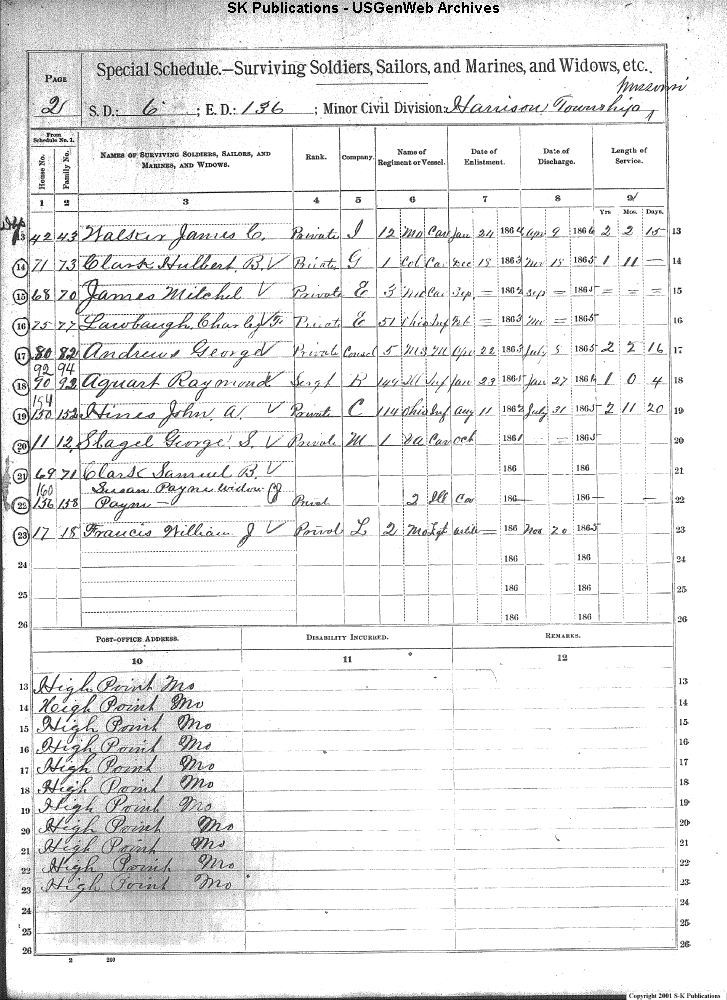 SK Publications - USGenWeb Archives
PAGE
2
Special Schedule.—Surviving Soldiers, Sailors, and Marines, and Widows, etc.
Missouri
S. D.: 6 ; E. D.: 136 ; Minor Civil Division: Harrison Township
From Schedule No. 1.
House No. Family No. NAMES OF SURVIVING SOLDIERS, SAILORS, AND MARINES, AND WIDOWS. Rank. Company. Name of Regiment or Vessel. Date of Enlistment. Date of Discharge. Length of Service.
1 2 3 4 5 6 7 8 9
Yrs Mos. Days.
13 42 43 Walker James C. Private I 12 Mo Cav Jan 24 1864 Apr 9 1866 2 2 15 13
14 71 73 Clark Hulbert B. V Private G 1 Col Cav Dec 18 1863 Nov 18 1865 1 11 — 14
15 68 70 James Mitchel V Private E 3 Mo Cav Sep. = 1862 Sep = 1865 = = = 15
16 75 77 Lawbaugh Charley F Private E 51 Ohio Inf Feb — 1863 Nov = 1865 16
17 80 82 Andrews George V Private 5 22 1863 July 5 1865 2 2 16 17
92 94
18 90 92 Aquart Raymond V Sergt K 149 Ill Inf Jan 23 1865 Jan 27 1866 1 0 4 18
154
19 150 152 Hines John A. V Private C 114 Ohio Inf Aug 11 1862 July 31 1865 2 11 20 19
20 11 12 Slagel George S. V Private M 1 Cav Oct 1861 = 1865 20
21 69 71 Clark Samuel B. V 186 186 21
160 Susan Payne widow of
22 156 158 Payne — Privat 2 Ill Cav 186— 186— — — 22
23 17 18 Francis William J V Private L 2 Mo Lgt = 186 Nov 20 1865 23
24 186 186 24
25 186 186 25
26 186 186 26
POST-OFFICE ADDRESS. DISABILITY INCURRED. REMARKS.
10 11 12
13 High Point Mo 13
14 High Point Mo 14
15 High Point Mo 15
16 High Point Mo 16
17 High Point Mo 17
18 High Point Mo 18
19 High Point Mo 19
20 High Point Mo 20
21 High Point Mo 21
22 High Point Mo 22
23 High Point Mo 23
24 24
25 25
26 26
Copyright 2001 S-K Publications